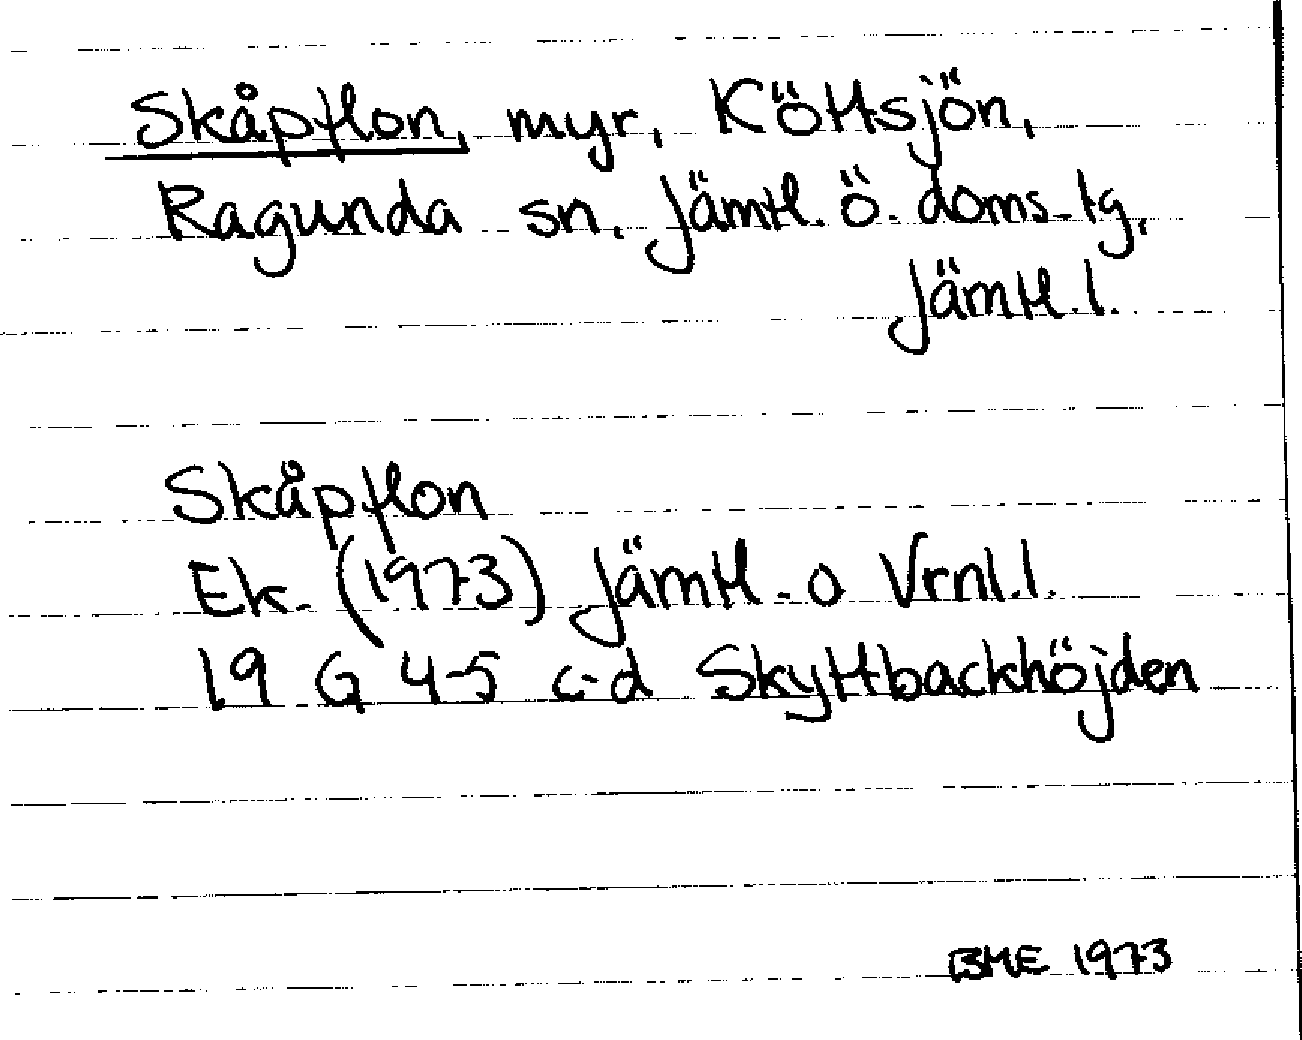 Skåpflon, myr, Köttsjön,
Ragunda sn. Jämtl. ö. doms.-lg,
Jämtl. l.
Skåpflon
Ek. (1973) Jämtl. o Vrnl. l.
19 G 4-5 c-d Skyttbackhöjden
BME 1973